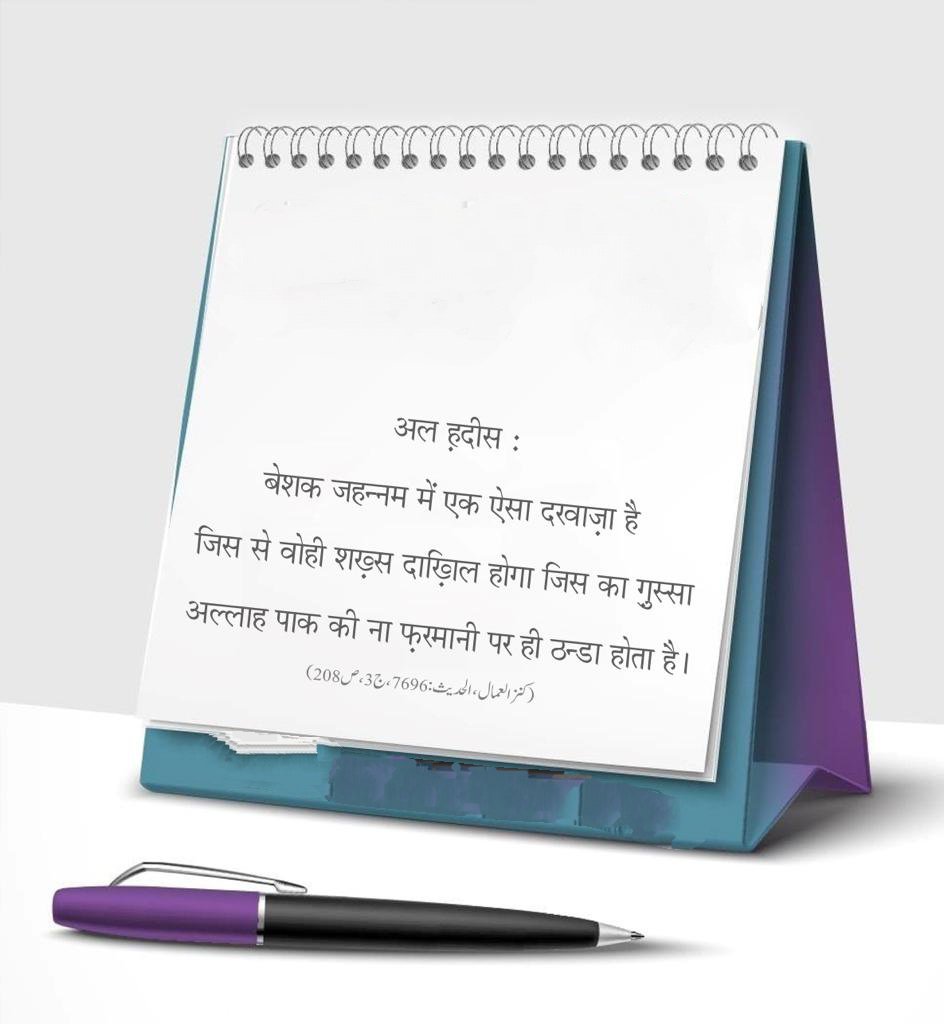 अल ह़दीस :
बेशक जहन्नम में एक ऐसा दरवाज़ा है
जिस से वोही शख़्स दाख़िल होगा जिस का ग़ुस्सा
अल्लाह पाक की ना फ़रमानी पर ही ठन्डा होता है।
(کنز العمال، الحدیث:7696، ج3، ص208)